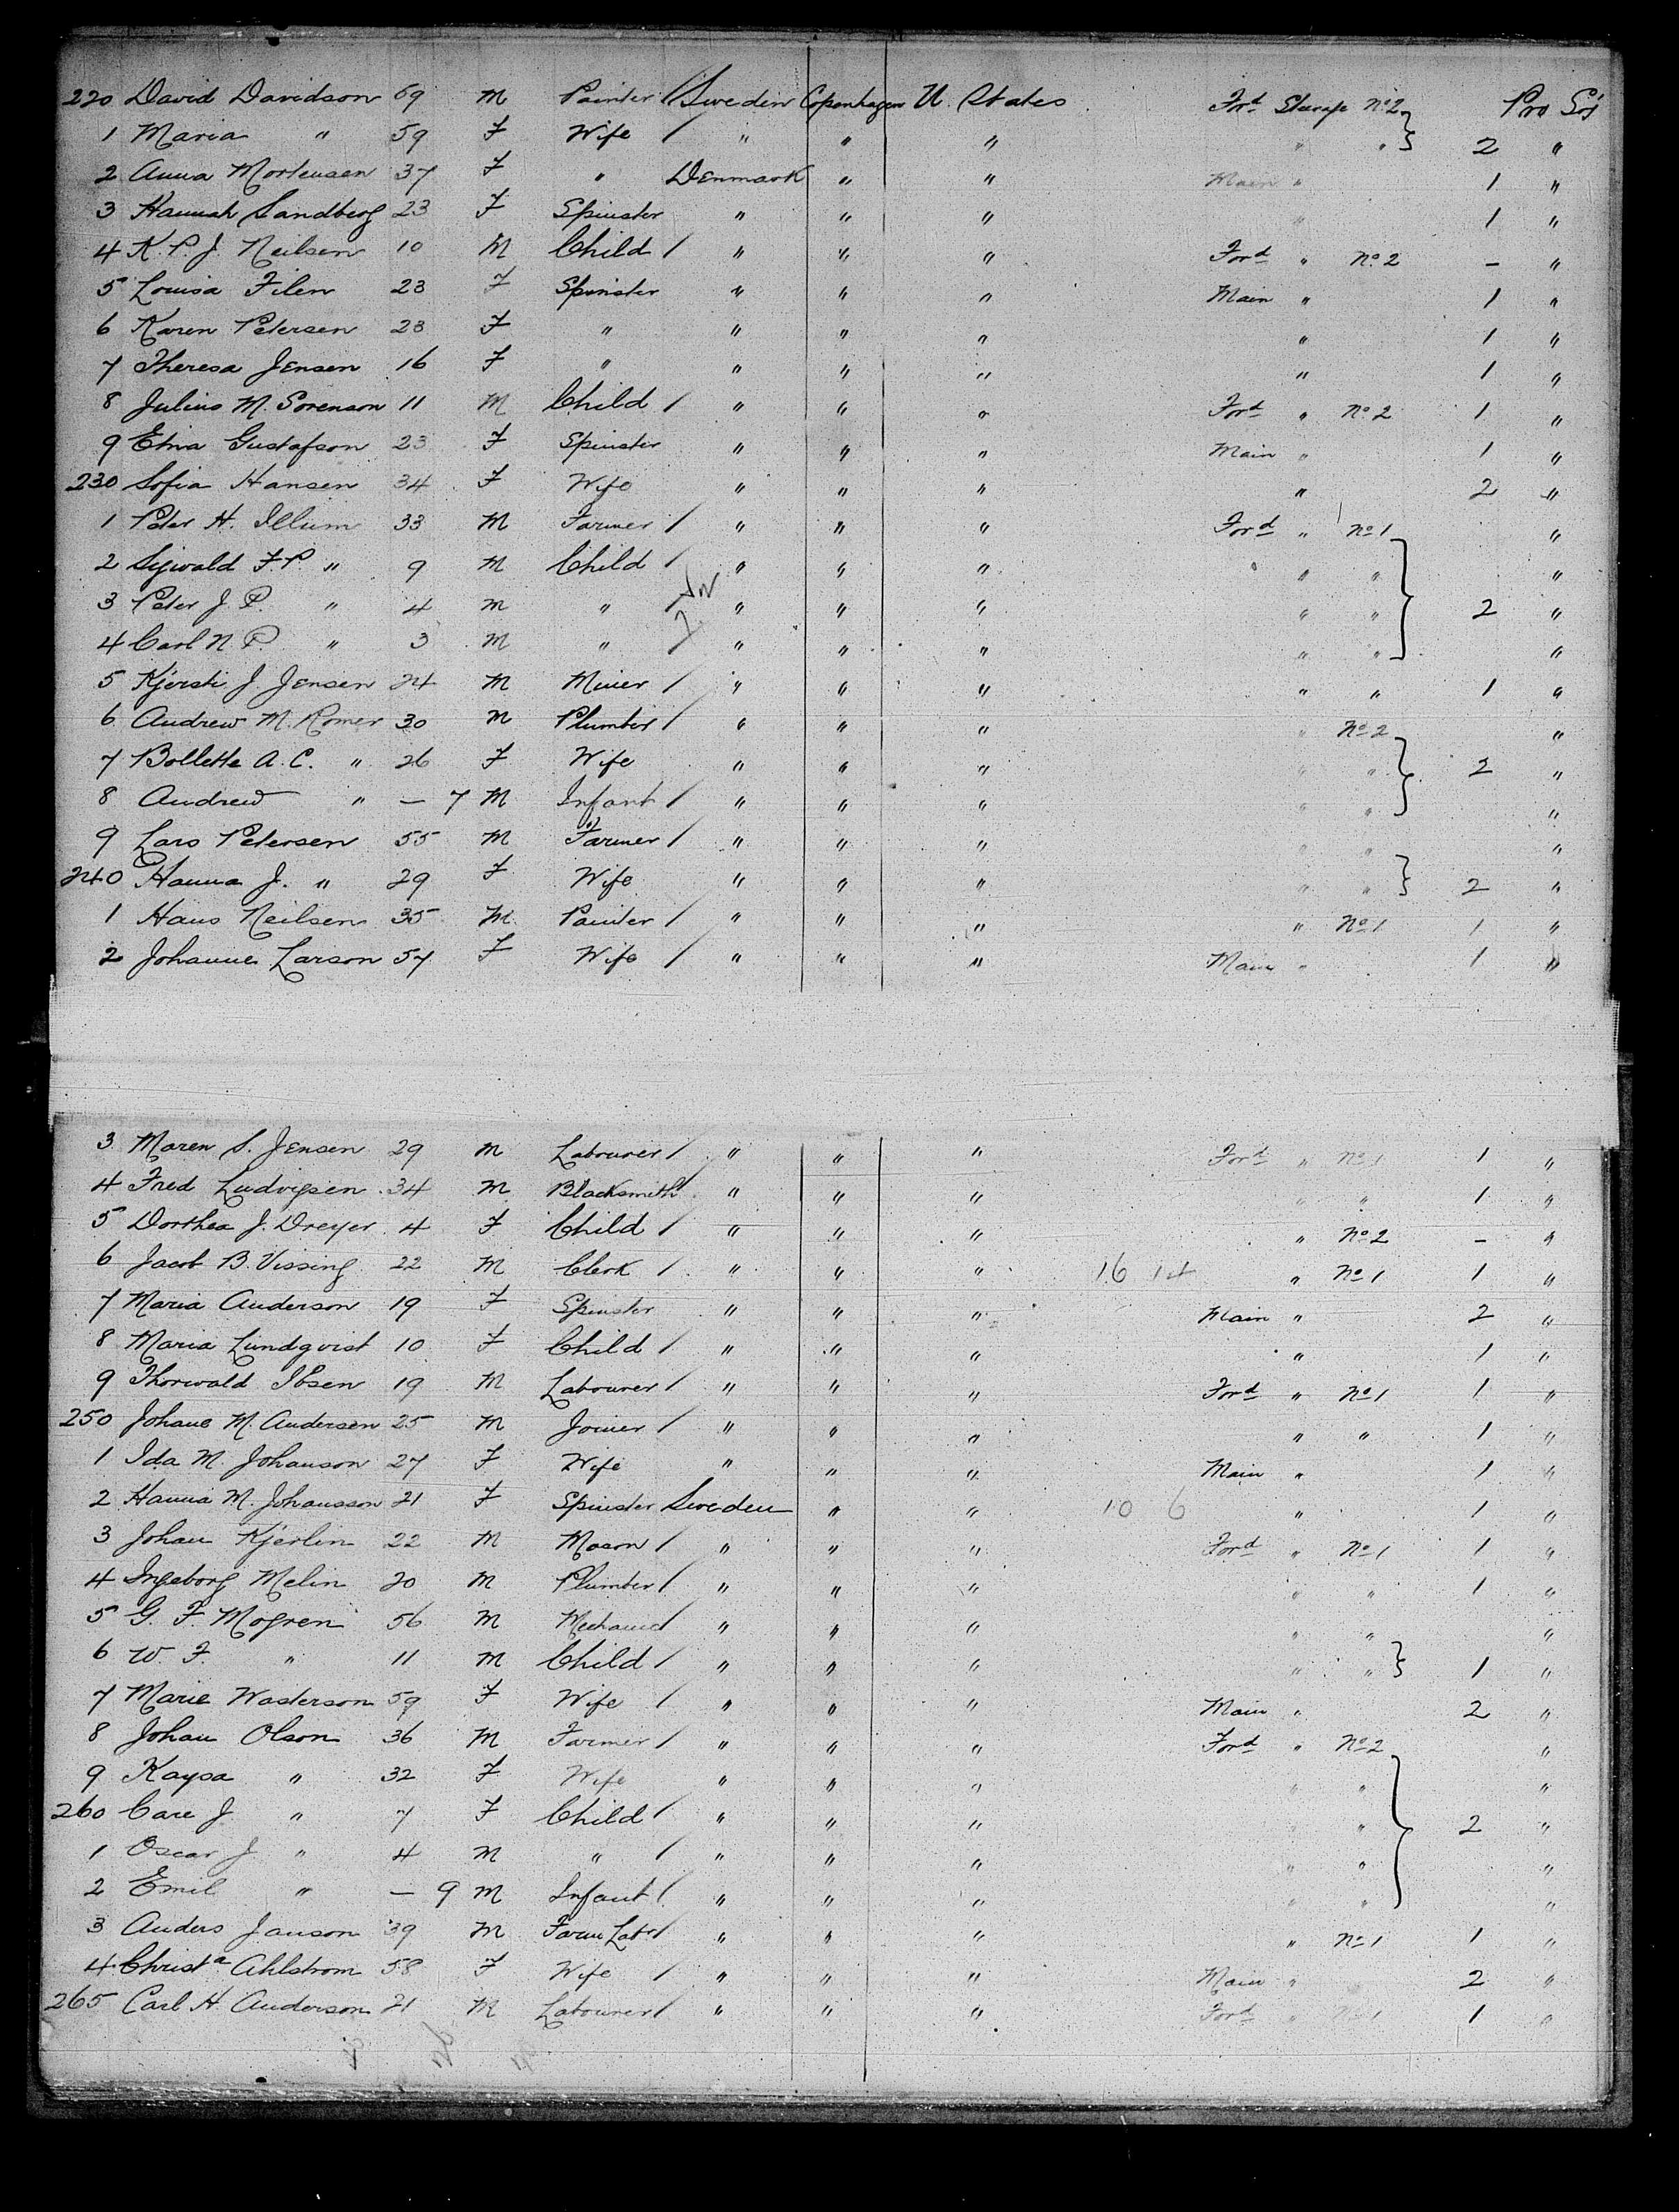 220 David Davidson 69 M Painter / Sweden Copenhagen U. States Ford Steerage No 2 Pro Soj
1 Maria " 59 F Wife / " " " " " } 2 "
2 Anna Mortensen 37 F " Denmark " " Main " 1 "
3 Hannah Sandberg 23 F Spinster " " " " 1 "
4 K. P. J. Neilsen 10 M Child / " " " Ford " No 2 - "
5 Louisa Filen 23 F Spinster " " " Main " 1 "
6 Karen Petersen 23 F " " " " " 1 "
7 Theresa Jensen 16 F " " " " " 1 "
8 Julius M. Sorenson 11 M Child / " " " Ford " No 2 1 "
9 Gustafson 23 F Spinster " " " Main " 1 "
230 Sofia Hansen 34 F Wife " " " " 2 "
1 Peter H. Illum 33 M Farmer / " " " Ford " No 1 "
2 F. P. " 9 M Child / " " " " " "
3 Peter J P. " 4 M " / " " " " " } 2 "
4 Carl N P. " 3 M " / " " " " " "
5 Kjersti J Jensen 24 M Miner / " " " " " 1 "
6 Andrew M. Romer 30 M Plumber / " " " " No 2 "
7 Bollette A. C. " 26 F Wife " " " " " } 2 "
8 Andrew " - 7 M Infant / " " " " " "
9 Lars Petersen 55 M Farmer / " " " " " "
240 Hanna J. " 29 F Wife " " " " " } 2 "
1 Hans Neilsen 35 M Painter / " " " " No 1 1 "
2 Johanne Larson 57 F Wife / " " " Main " 1 "
3 Maren S. Jensen 29 M Labourer / " " " Ford " No 1 1 "
4 Fred Ludvigsen 34 M Blacksmith " " " " " 1 "
5 Dorthea J. Dreyer 4 F Child / " " " " No 2 - "
6 Jacob B. Vissing 22 M Clerk / " " " 16 " No 1 1 "
7 Maria Anderson 19 F Spinster " " " Main " 2 "
8 Maria Lundqvist 10 F Child / " " " " 1 "
9 Thorwald Ibsen 19 M Labourer / " " " Ford " No 1 1 "
250 Johans M. Andersen 25 M Joiner / " " " " " 1 "
1 Ida M. Johanson 27 F Wife " " " Main " 1 "
2 Hanna M. Johansson 21 F Spinster Sweden " " 10 6 " 1 "
3 Johan Kjerlin 22 M Mason / " " " Ford " No 1 1 "
4 Ingeborg Melin 20 M Plumber / " " " " " 1 "
5 G. F. Mogren 56 M Mechanic / " " " " " "
6 W. F. " 11 M Child / " " " " " } 1 "
7 Marie Wasterson 59 F Wife / " " " Main " 2 "
8 Johan Olson 36 M Farmer / " " " Ford " No 2 "
9 Kaysa " 32 F Wife " " " " " "
260 J " 7 F Child / " " " " " } 2 "
1 Oscar J. " 4 M " / " " " " " "
2 Emil " - 9 M Infant / " " " " " "
3 Anders Janson 39 M Farm Labr / " " " " No 1 1 "
4 Christa Ahlstrom 58 F Wife / " " " Main " 2 "
265 Carl H. Anderson 21 M Labourer / " " " Ford " No 1 1 "